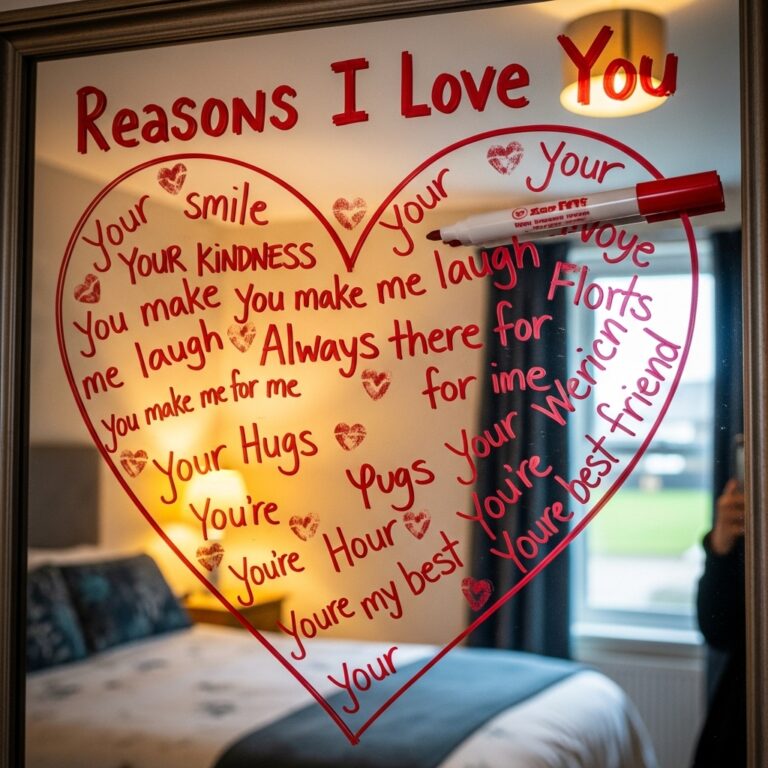 Reasons I Love You
Your smile
Your
Your
YOUR KINDNESS
You make
me laugh
You make me laugh
Florts
Always there for
for ime
You make me for me
Your Hugs
Your Wericn
Youre best friend
You're
You're
You're Hour
Youre my best
Your